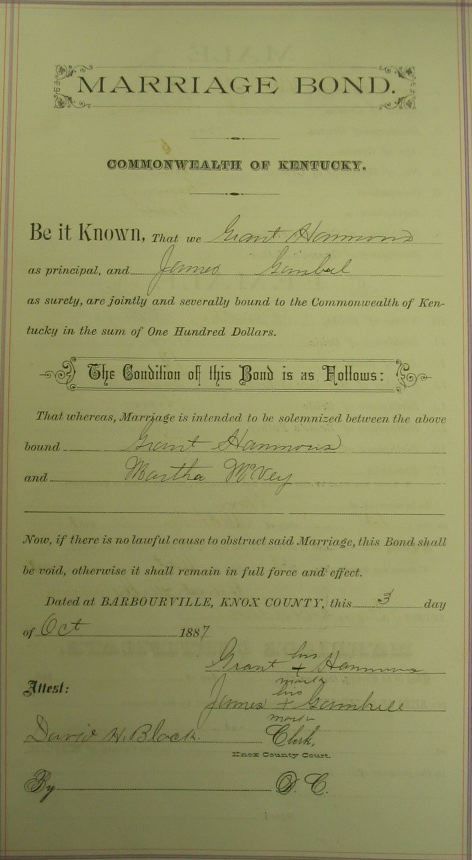 MARRIAGE BOND.
COMMONWEALTH OF KENTUCKY.
Be it Known, That we Grant Hammons
as principal, and James Gambel
as surety, are jointly and severally bound to the Commonwealth of Ken-
tucky in the sum of One Hundred Dollars.
The Condition of this Bond is as Follows:
That whereas, Marriage is intended to be solemnized between the above
bound Grant Hammons
and Martha McVey
Now, if there is no lawful cause to obstruct said Marriage, this Bond shall
be void, otherwise it shall remain in full force and effect.
Dated at BARBOURVILLE, KNOX COUNTY, this 3 day
of Oct 1887
his
Grant + Hammons
mark
Attest:
his
James + Gambrell
mark
David H. Black Clerk,
Knox County Court.
By D. C.